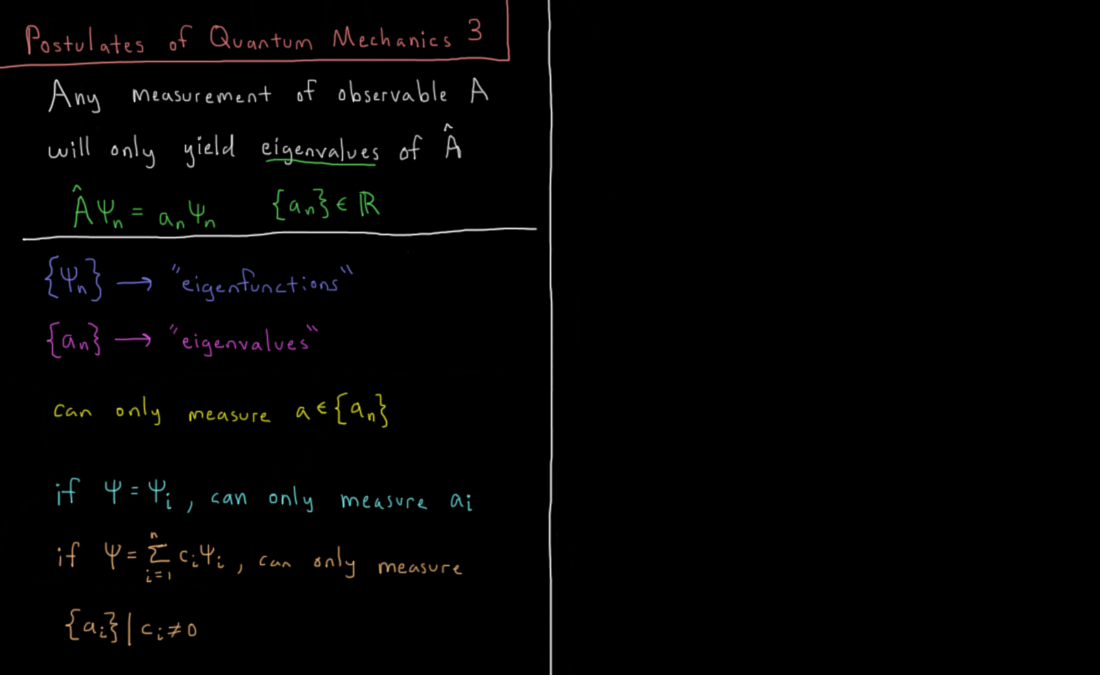 Postulates of Quantum Mechanics 3
Any measurement of observable A
will only yield eigenvalues of Â
Âψₙ = aₙψₙ {aₙ} ∈ ℝ
{ψₙ} → "eigenfunctions"
{aₙ} → "eigenvalues"
can only measure a ∈ {aₙ}
if ψ = ψᵢ, can only measure aᵢ
if ψ = ∑ⁿᵢ₌₁ cᵢψᵢ, can only measure
{aᵢ} | cᵢ ≠ 0